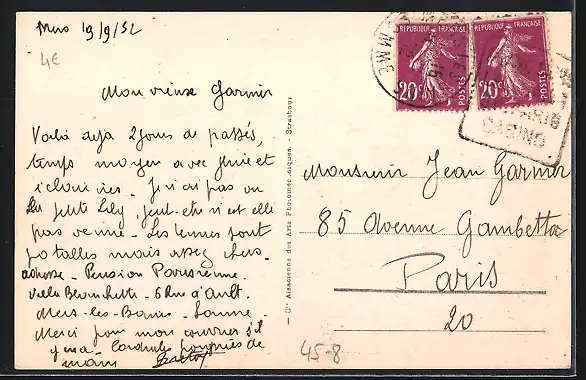 Mers 19/9/32
4€
Mon vieux Garnier
Voilà deja 2 jours de passés,
temps moyen avec pluie et
éclaircies. Je n'ai pas vu
la petite Lily, peut-etre n'est elle
pas venue. Les tennis sont
potables mais assez chers.
adresse - Pension Parisienne.
Villa Blanchette - 6 Rue d'Ault.
Mers-les-Bains - Somme.
Merci pour mon courrier s'il
y en a - Cordiales poignées de
mains
Cie Alsacienne des Arts Photomécaniques. - Strasbourg
REPUBLIQUE FRANÇAISE
20c
POSTES
REPUBLIQUE FRANÇAISE
20c
POSTES
SOMME
CASINO
Monsieur Jean Garnier
85 Avenue Gambetta
Paris
20
45-8